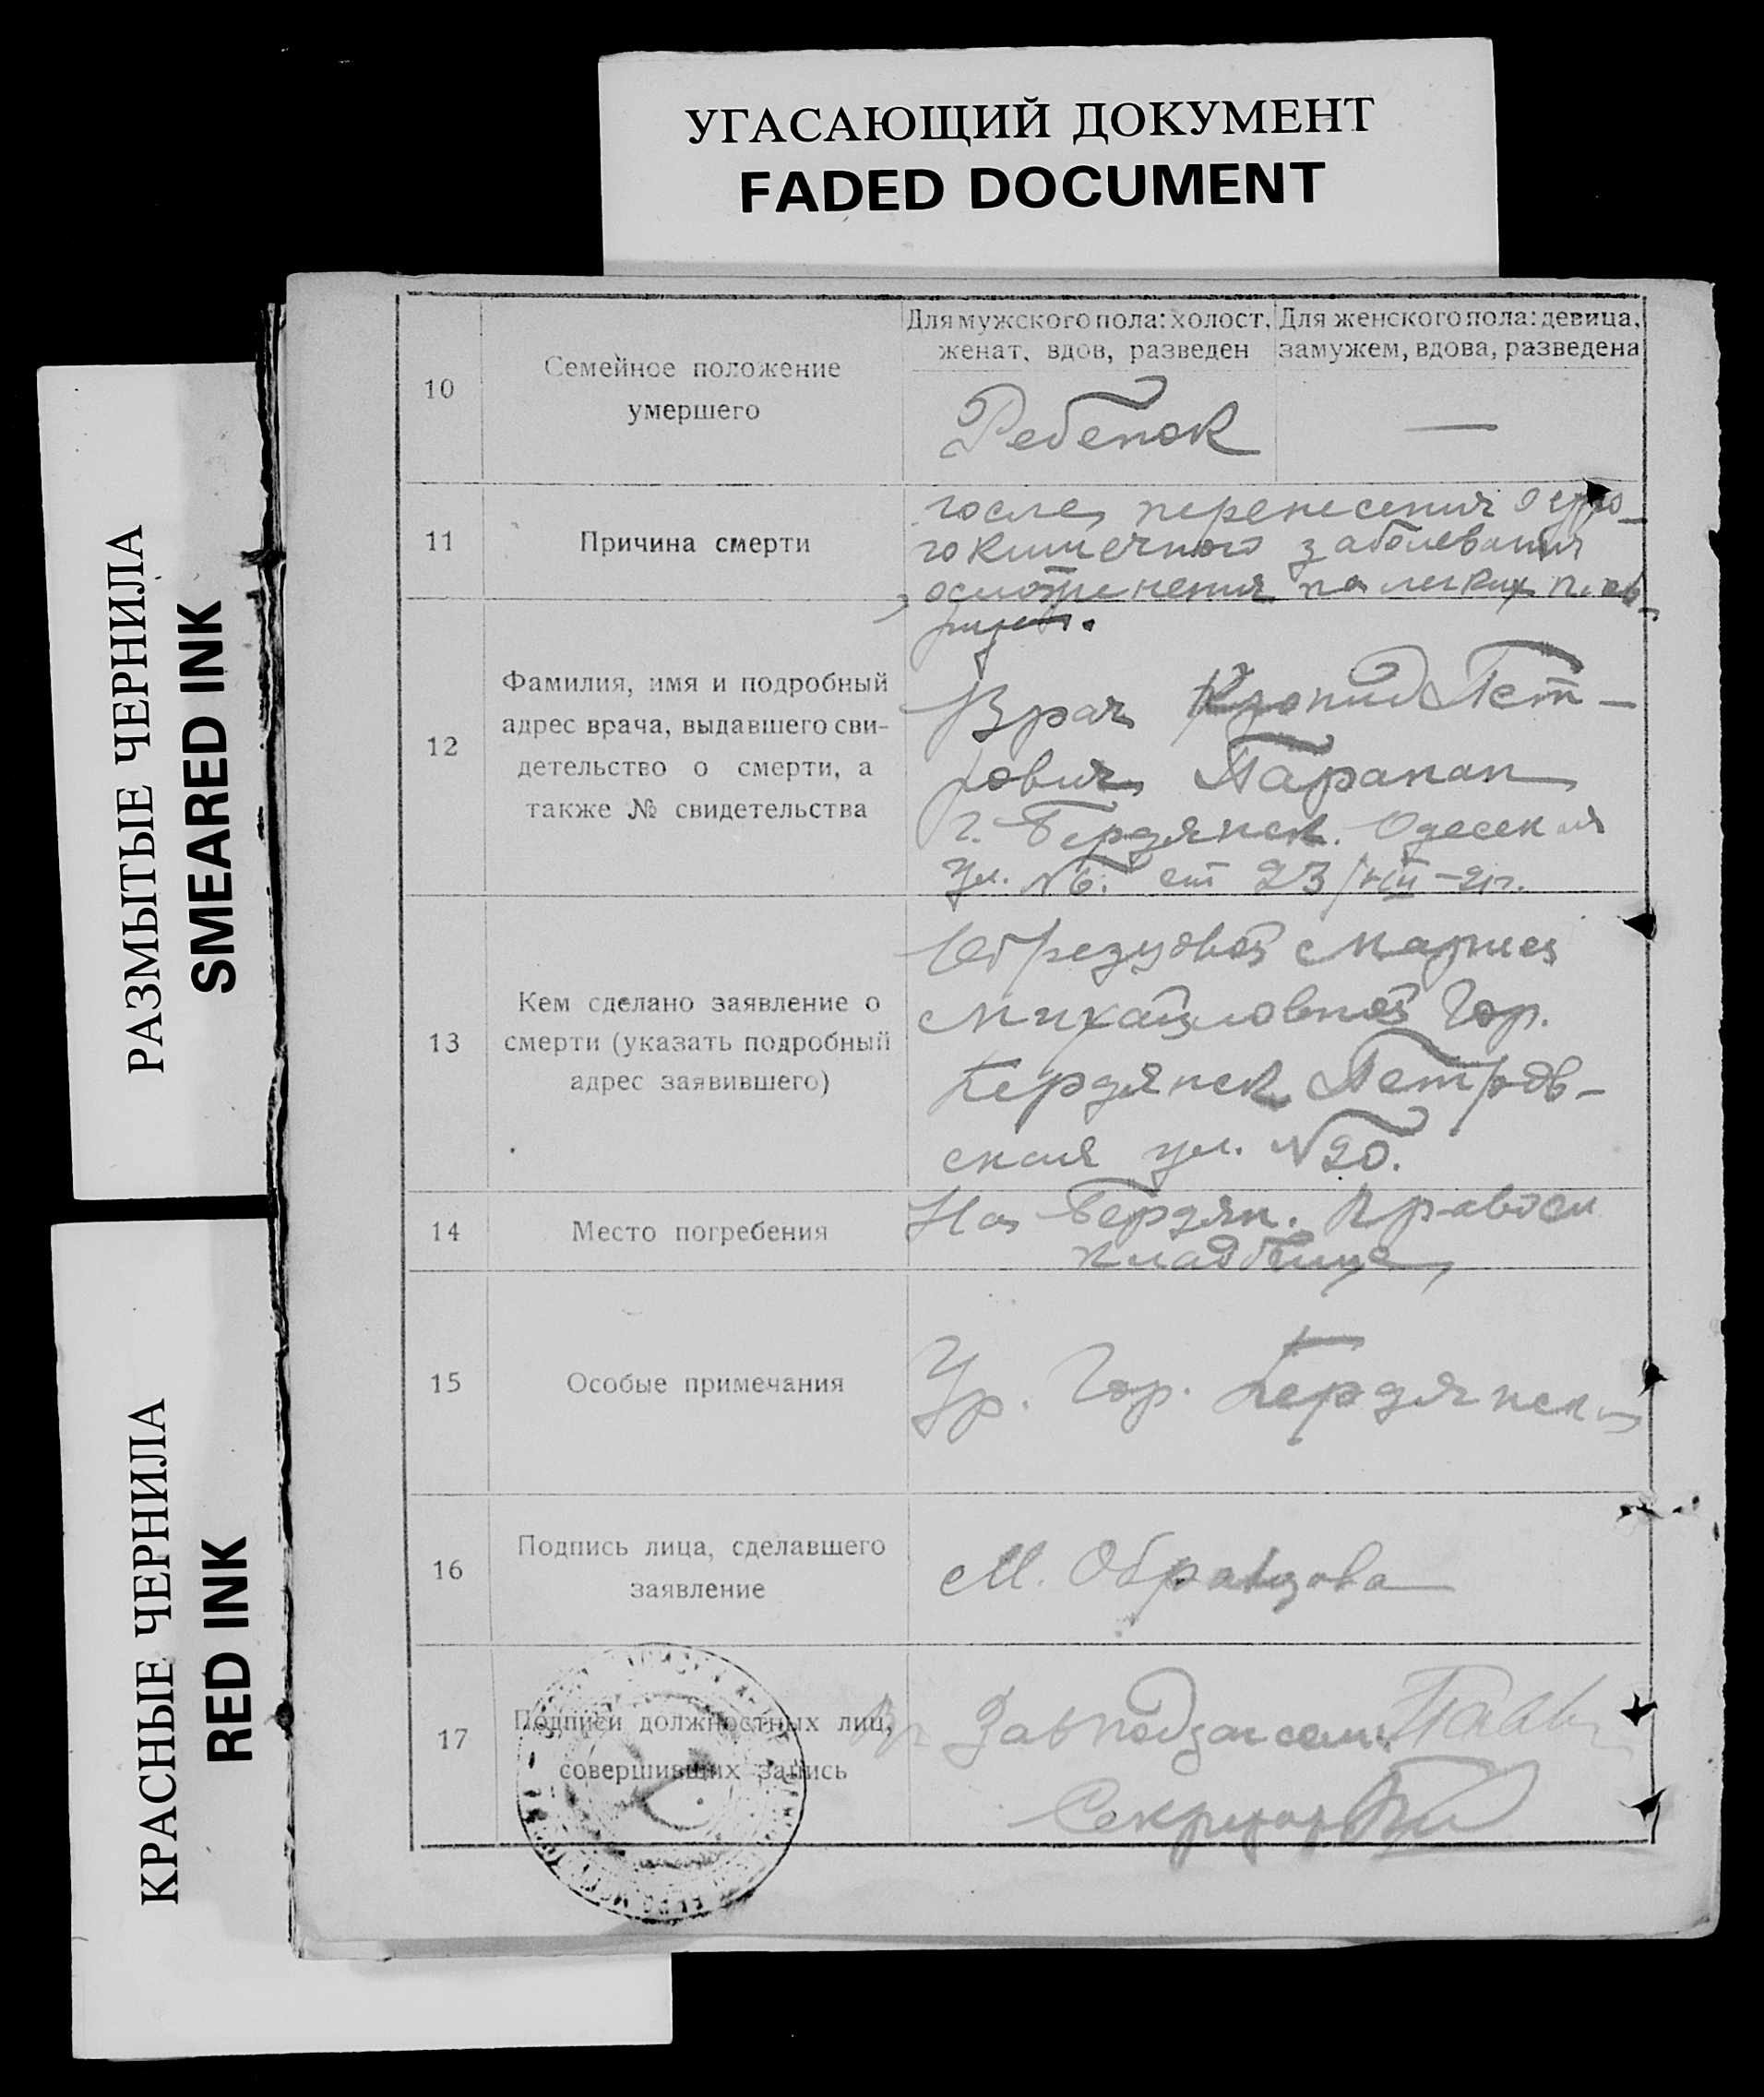 УГАСАЮЩИЙ ДОКУМЕНТ
FADED DOCUMENT
РАЗМЫТЫЕ ЧЕРНИЛА
SMEARED INK
КРАСНЫЕ ЧЕРНИЛА
RED INK
10
Семейное положение
умершего
Для мужского пола: холост,
женат, вдов, разведен
Для женского пола: девица,
замужем, вдова, разведена
Ребенок
—
11
Причина смерти
после перенесения остро-
го кишечного заболевания
на легких
12
Фамилия, имя и подробный
адрес врача, выдавшего сви-
детельство о смерти, а
также № свидетельства
Врач Пет-
рович
г. Бердянск. Одеская
ул. №6. от 23/VIII-21г.
13
Кем сделано заявление о
смерти (указать подробный
адрес заявившего)
Марией
Михайловной Гор.
Бердянск Петров-
ская ул. №20.
14
Место погребения
На Бердян. Правосл
кладбище
15
Особые примечания
Ур. Гор. Бердянска
16
Подпись лица, сделавшего
заявление
М. Образцова
17
Подписи должностных лиц,
совершивших запись
Завподзагсом
Секретарь